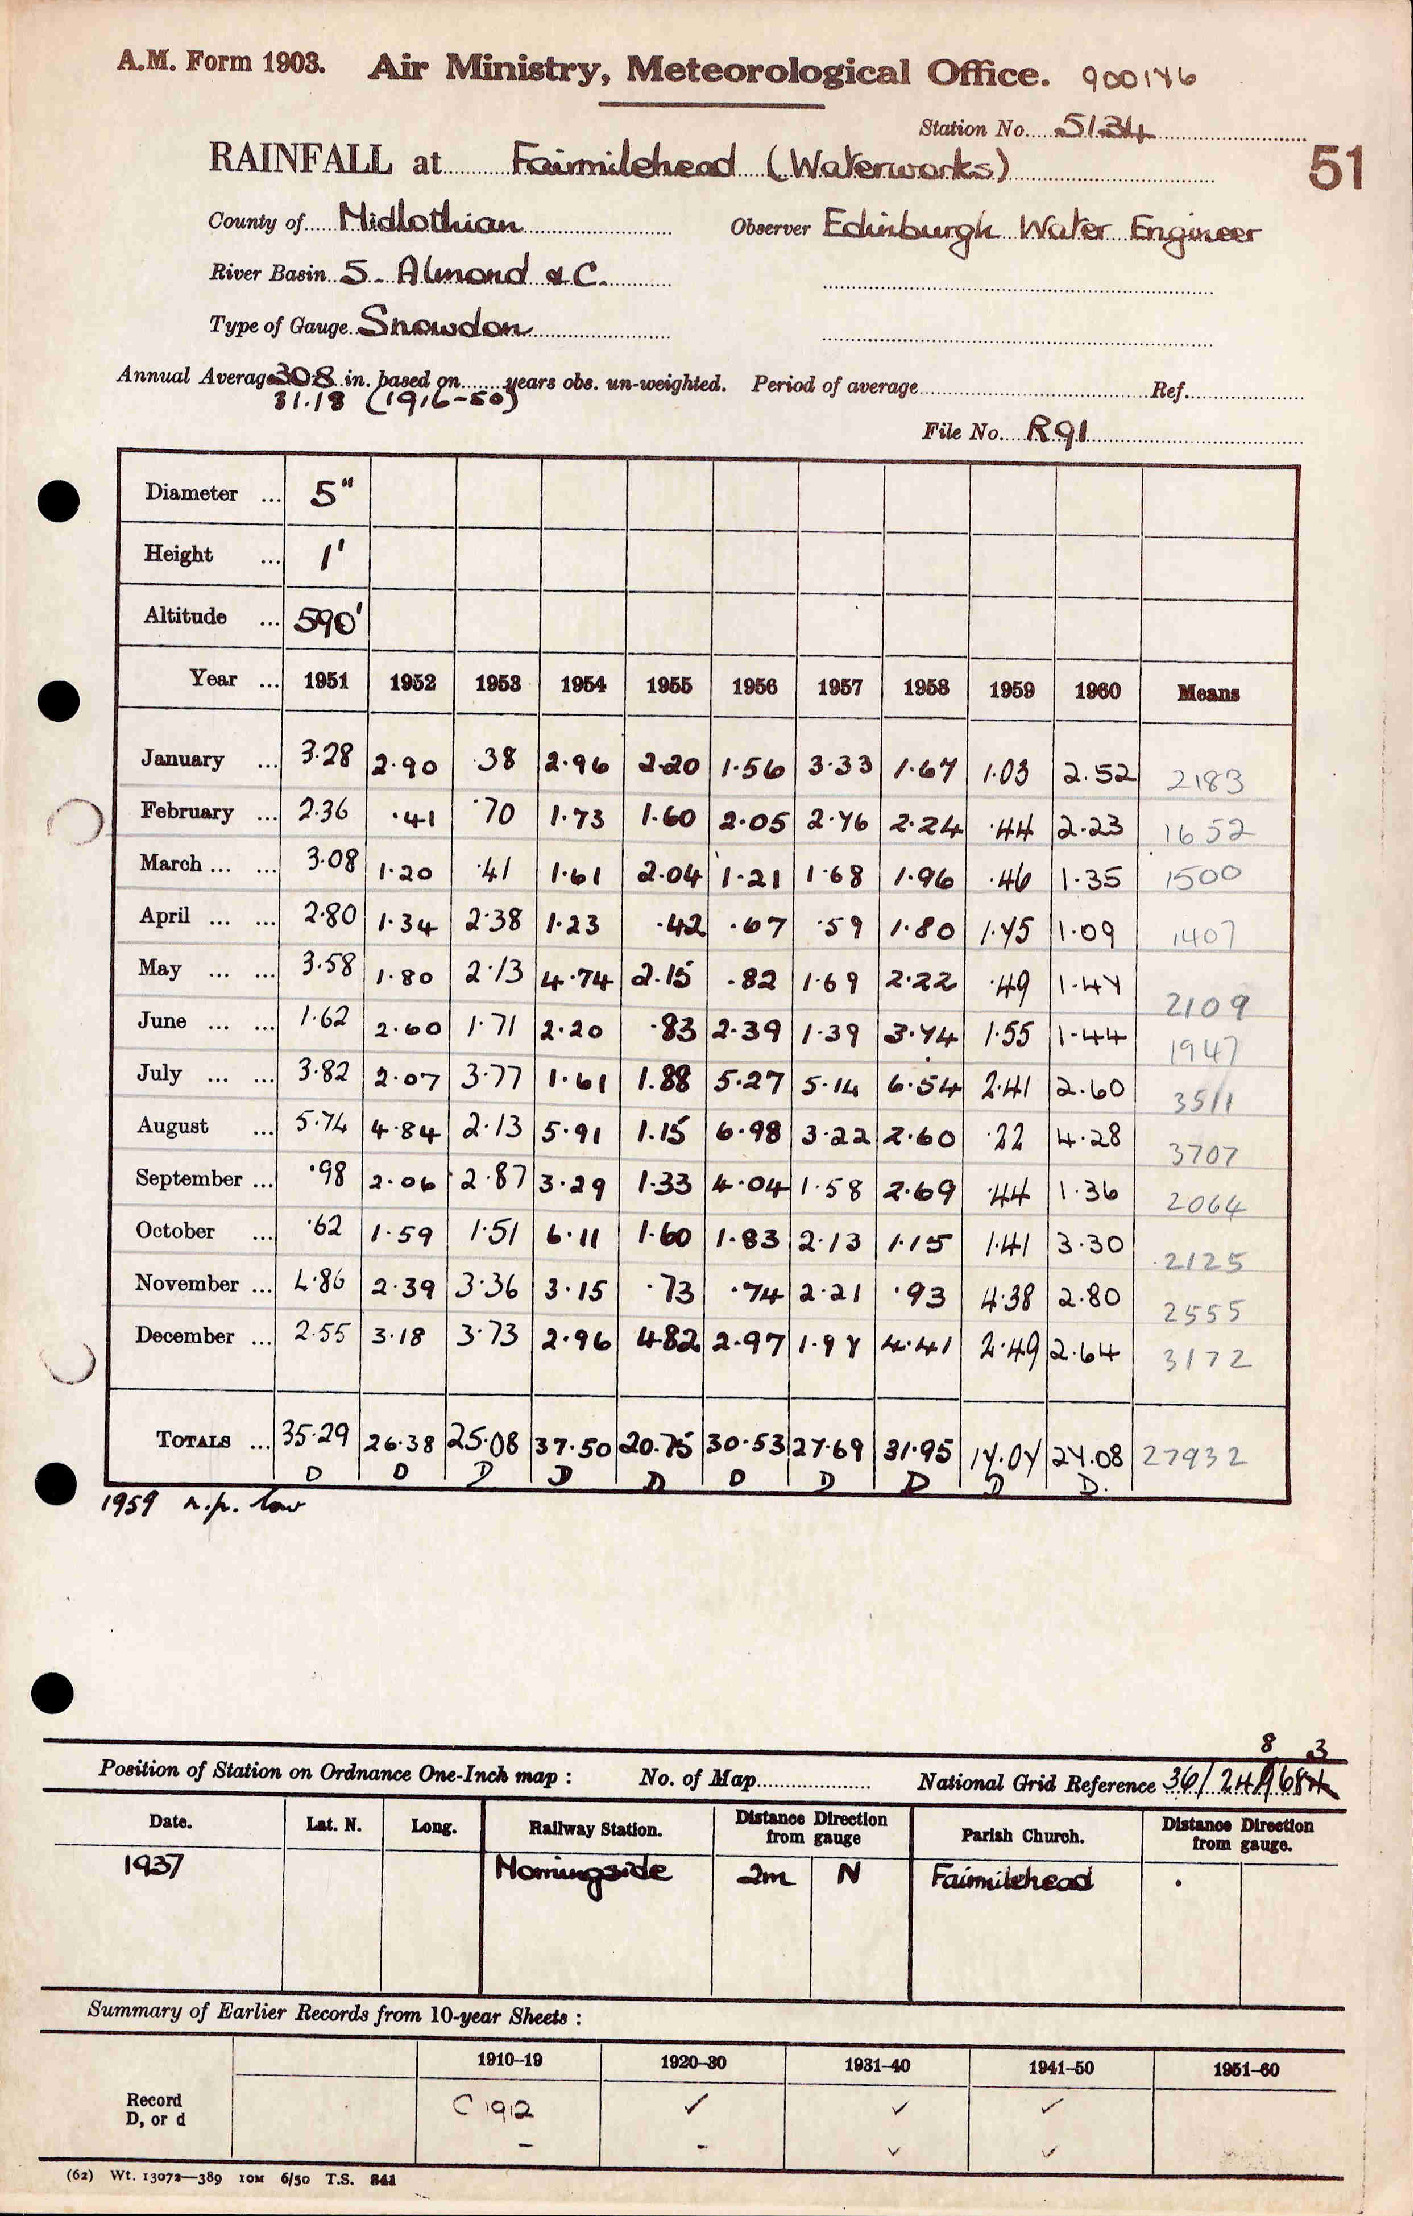 A.M. Form 1903. Air Ministry, Meteorological Office. 900146
Station No. 5134
RAINFALL at Fairmilehead (Waterworks) 51
County of Midlothian Observer Edinburgh Water Engineer
River Basin 5. Almond &c.
Type of Gauge Snowdon
Annual Average 30.8 in. based on years obs. un-weighted. Period of average Ref.
31.18 (1916-50)
File No. R91
Diameter ... 5"
Height ... 1'
Altitude ... 590'
Year ... 1951 1952 1953 1954 1955 1956 1957 1958 1959 1960 Means
January ... 3.28 2.90 .38 2.96 2.20 1.56 3.33 1.67 1.03 2.52 2183
February ... 2.36 .41 .70 1.73 1.60 2.05 2.76 2.24 .44 2.23 1652
March ... ... 3.08 1.20 .41 1.61 2.04 1.21 1.68 1.96 .46 1.35 1500
April ... ... 2.80 1.34 2.38 1.23 .42 .67 .59 1.80 1.75 1.09 1407
May ... ... 3.58 1.80 2.13 4.74 2.15 .82 1.69 2.22 .49 1.47 2109
June ... ... 1.62 2.60 1.71 2.20 .83 2.39 1.39 3.74 1.55 1.44 1947
July ... ... 3.82 2.07 3.77 1.61 1.88 5.27 5.14 6.54 2.41 2.60 3511
August ... 5.74 4.84 2.13 5.91 1.15 6.98 3.22 2.60 .22 4.28 3707
September ... .98 2.06 2.87 3.29 1.33 4.04 1.58 2.69 .44 1.36 2064
October ... .62 1.59 1.51 6.11 1.60 1.83 2.13 1.15 1.41 3.30 2125
November ... 4.86 2.39 3.36 3.15 .73 .74 2.21 .93 4.38 2.80 2555
December ... 2.55 3.18 3.73 2.96 4.82 2.97 1.97 4.41 2.49 2.64 3172
TOTALS ... 35.29 26.38 25.08 37.50 20.75 30.53 27.69 31.95 17.07 27.08 27932
D D D D D D D D D D.
1959 n.p. low
8 3
Position of Station on Ordnance One-Inch map : No. of Map National Grid Reference 36/24 68
Date. Lat. N. Long. Railway Station. Distance Direction from gauge Parish Church. Distance Direction from gauge.
1937 Morningside 2m N Fairmilehead
Summary of Earlier Records from 10-year Sheets :
1910–19 1920–30 1931–40 1941–50 1951–60
Record C 1912 ✓ ✓ ✓
D, or d - - ✓ ✓
(62) Wt. 13072—389 10M 6/50 T.S. 841